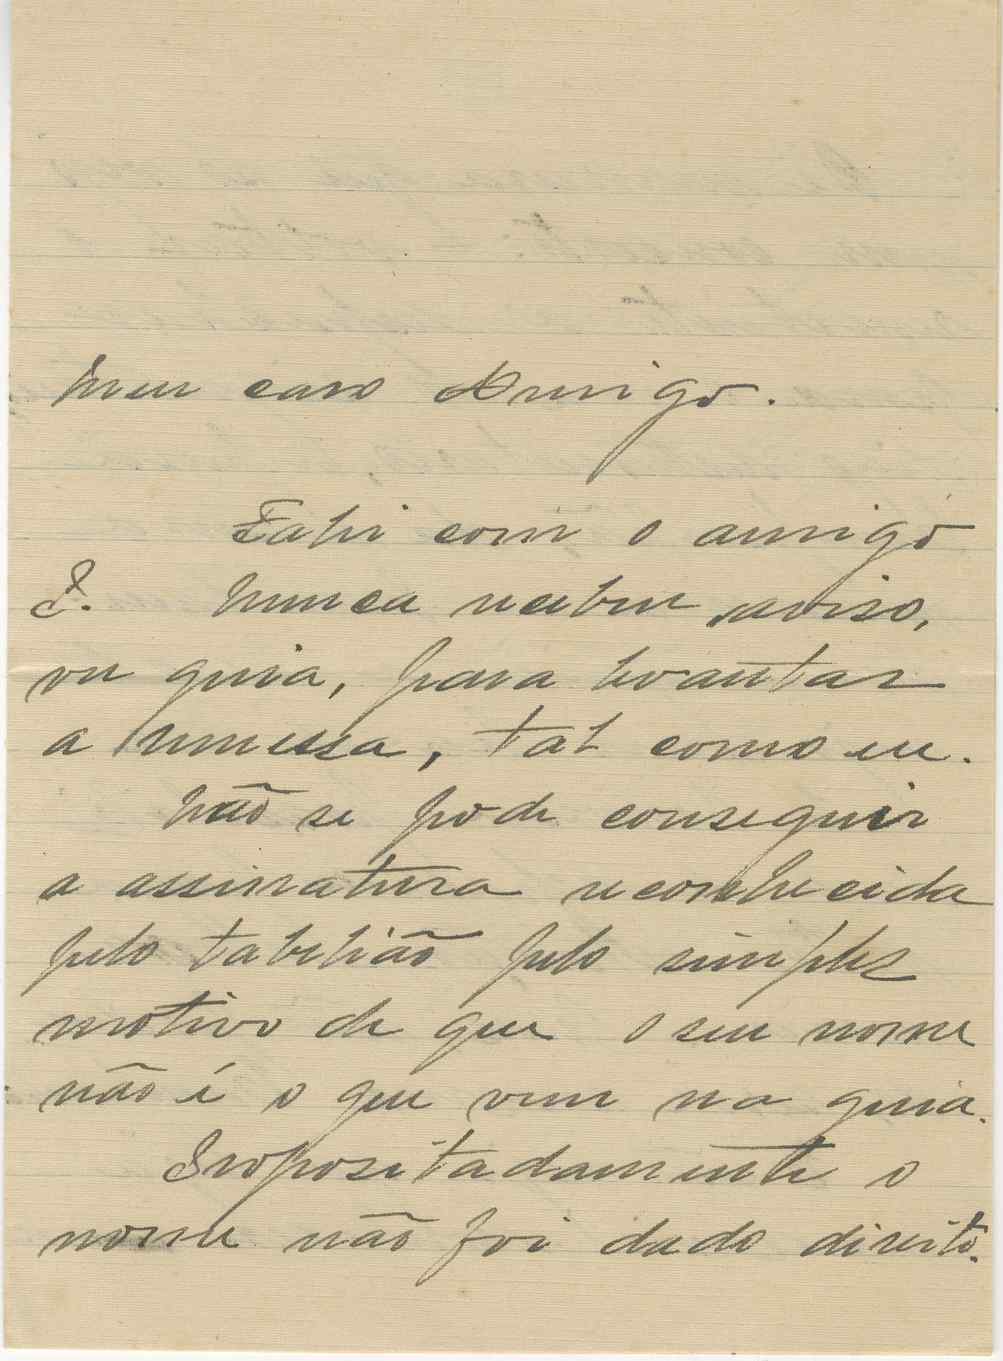 Meu caro Amigo.
Falei com o amigo
P. Nunca recebeu aviso,
ou guia, para levantar
a remessa, tal como eu.
Não se pode conseguir
a assinatura reconhecida
pelo tabelião pelo simples
motivo de que o seu nome
não é o que vem na guia.
Propositadamente o
nome não foi dado direito.